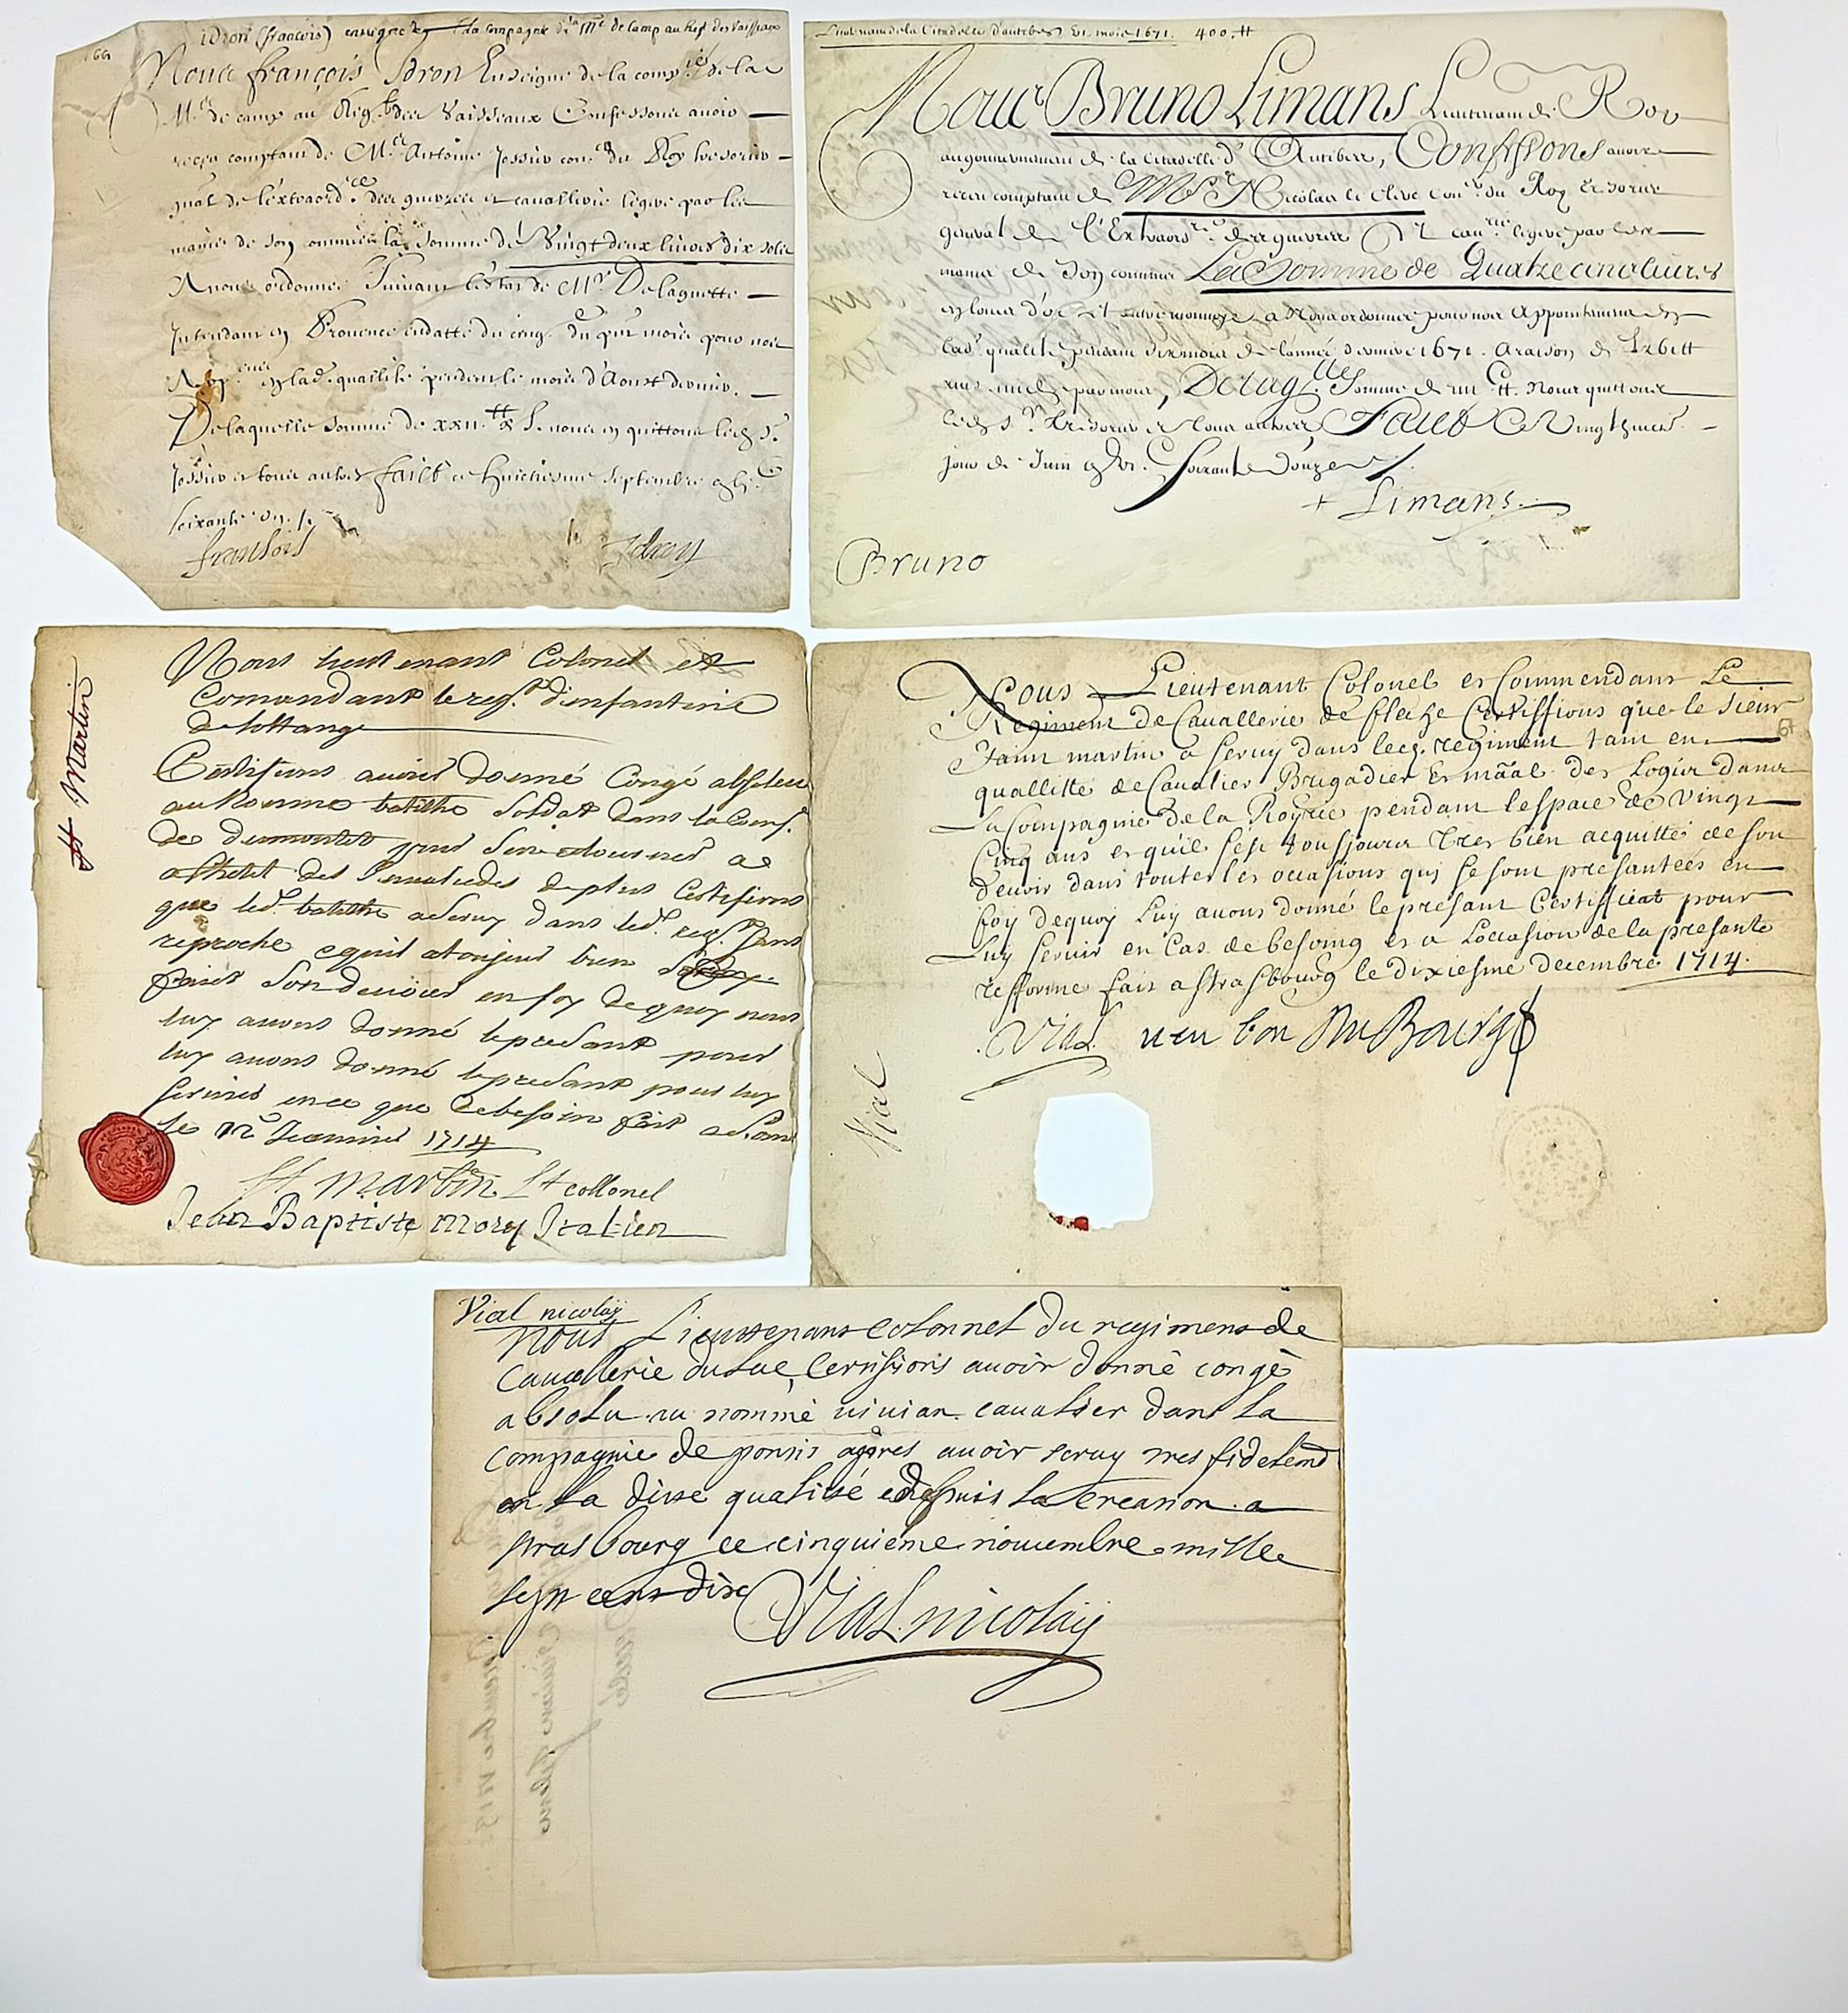 idron (francois) enseigne la compagnie de la Me de Camp au Regt des Vaisseaux
Nous françois Idron Enseigne de la comp.ie de la
M.e de camp au Reg.t des Vaisseaux Confessons avoir
receu comptant de M.re Antoine Jossier con.er du Roy tresorier
gnal de l'extraord.re des guerres et cavallerie legere par les
mains de son commis la somme de Vingt deux livres dix sols
A nous ordonnée Suivant l'estat de M.r Delaguette
Intendant en Provence endatte du cinq du pnt mois pour nos
App. en lad. quallité pendant le mois d'Aoust dernier.
De laquelle somme de xxii.tt x s. nous en quittons led. S.r
Jossier et tous autres faict ce huictiesme Septembre
soixante
fransois Idron
Lieutenant de la Citadelle d'antibes six mois 1671. 400.tt
Nous Bruno Limans Lieutenant de Roy
au gouvernement de la Citadelle d'Antibes, Confessons avoir
receu comptant de M.re Nicolas le Clerc con.er du Roy tresorier
general de l'Extraord.re des guerres et cau.rie legere par les
mains de son commis La Somme de Quatre cens livres
en louis d'or et autre monnoye a Nous ordonnée pour nos Appointemens en
lad. qualité pendant six mois de l'année derniere 1671. a raison de
par mois, De laq.lle Somme de Nous quittons
led. S.r Tresorier et tous autres, Faict ce Vingt
jour de Juin Soixante Douze
+ Limans.
Bruno
St Martin
Nous lieutenant Colonel et
Comandant le reg.t d'infanterie
de
Certifions avoir donné Congé absolu
au Nommé batiste Soldat dans la Comp.
de pour
hotel des Invalides de plus Certifions
que led. batiste a Servy dans led. reg.t Sans
reproche equil a toujours bien
faict Son devoir en foy de quoy nous
luy avons donné le presant pour
luy avons donné le presant pour luy
servir en ce que de besoin fait a
le 12 1714
St martin Lt collonel
Jean Baptiste mory Italien
Nous Lieutenant Colonel et Commendant Le
Regiment de Cavallerie de fleche Certiffions que le Sieur
Jann martin a servy dans led. regiment tant en
quallitté de Cavalier Brigadier et mãal des Logis dans
La Compagnie de la Royrie pendant l'espace de Vingt
Cinq ans et qu'il s'est tousjours tres bien acquitté de son
devoir dans touttes les occasions quy se sont presantées en
foy dequoy Luy avons donné le presant Certifficat pour
Luy servir en Cas de besoing et a L'occasion de la presante
refforme fait a strasbourg le dixiesme decembre 1714.
Vial veu bon Du Bourg
Vial
Vial nicolaÿ
Nous Lieuttenant colonnel du regiment de
Cavallerie duluc, Certifions avoir donné congé
absolu au nommé vivian cavalier dans la
compagnie de ponsis apres avoir servy tres fidelemt
en la ditte qualité depuis la creation a
strasbourg ce cinquieme novembre mille
sept cent dix
Vial nicolaÿ